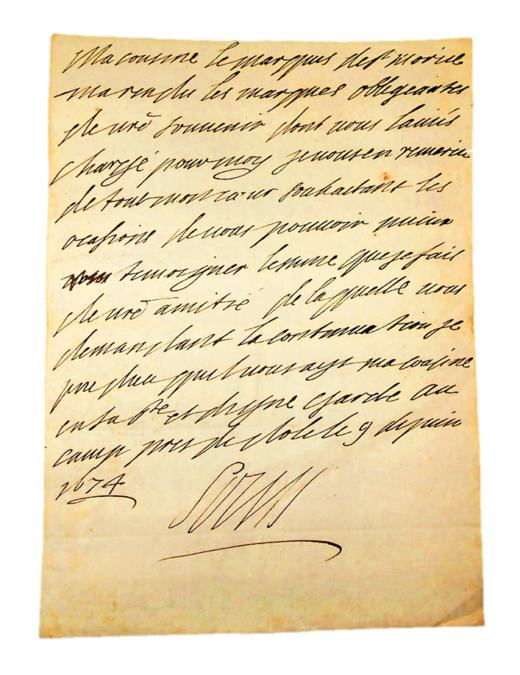 Ma cousine le marquis de st moris
ma rendu les marques obligeantes
de vrē souvenir dont vous lauiés
chargé pour moy je vous en remercie
de tout mon cœur souhaitant les
ocasions de vous pouvoir mieux
temoigner lestime que je fais
de vrē amitié de laquelle vous
demandant la continuation je
prie dieu quil vous ayt ma cousine
en sa ste et digne garde au
camp pres de dole le 9 de juin
1674
Louis